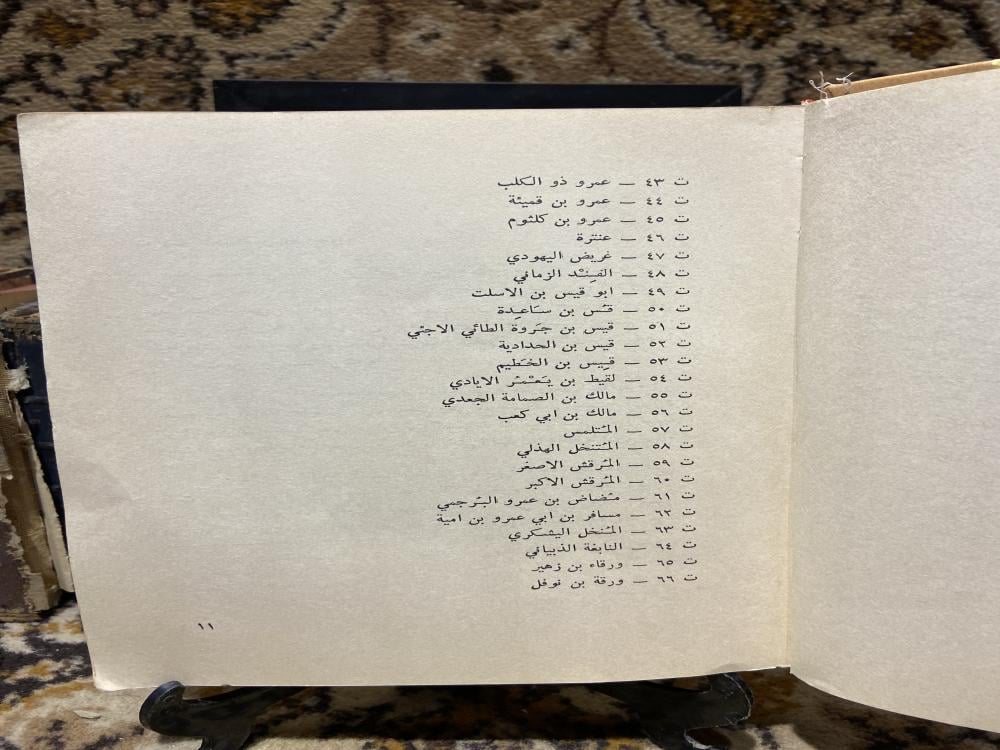 ت ٤٣ — عمرو ذو الكلب
ت ٤٤ — عمرو بن قميئة
ت ٤٥ — عمرو بن كلثوم
ت ٤٦ — عنترة
ت ٤٧ — غريض اليهودي
ت ٤٨ — الفِنْد الزماني
ت ٤٩ — ابو قيس بن الاسلت
ت ٥٠ — قُس بن سَاعِدة
ت ٥١ — قيس بن جَروة الطائي الاجئي
ت ٥٢ — قيس بن الحدادية
ت ٥٣ — قيس بن الخَطيم
ت ٥٤ — لقيط بن يَعْمُر الايادي
ت ٥٥ — مالك بن الصمامة الجعدي
ت ٥٦ — مالك بن ابي كعب
ت ٥٧ — المُتلمس
ت ٥٨ — المُتنخل الهذلي
ت ٥٩ — المُرقش الاصغر
ت ٦٠ — المُرقش الاكبر
ت ٦١ — مُضاض بن عمرو البُرجمي
ت ٦٢ — مسافر بن ابي عمرو بن امية
ت ٦٣ — المُنخل اليشكري
ت ٦٤ — النابغة الذبياني
ت ٦٥ — ورقاء بن زهير
ت ٦٦ — ورقة بن نوفل
١١